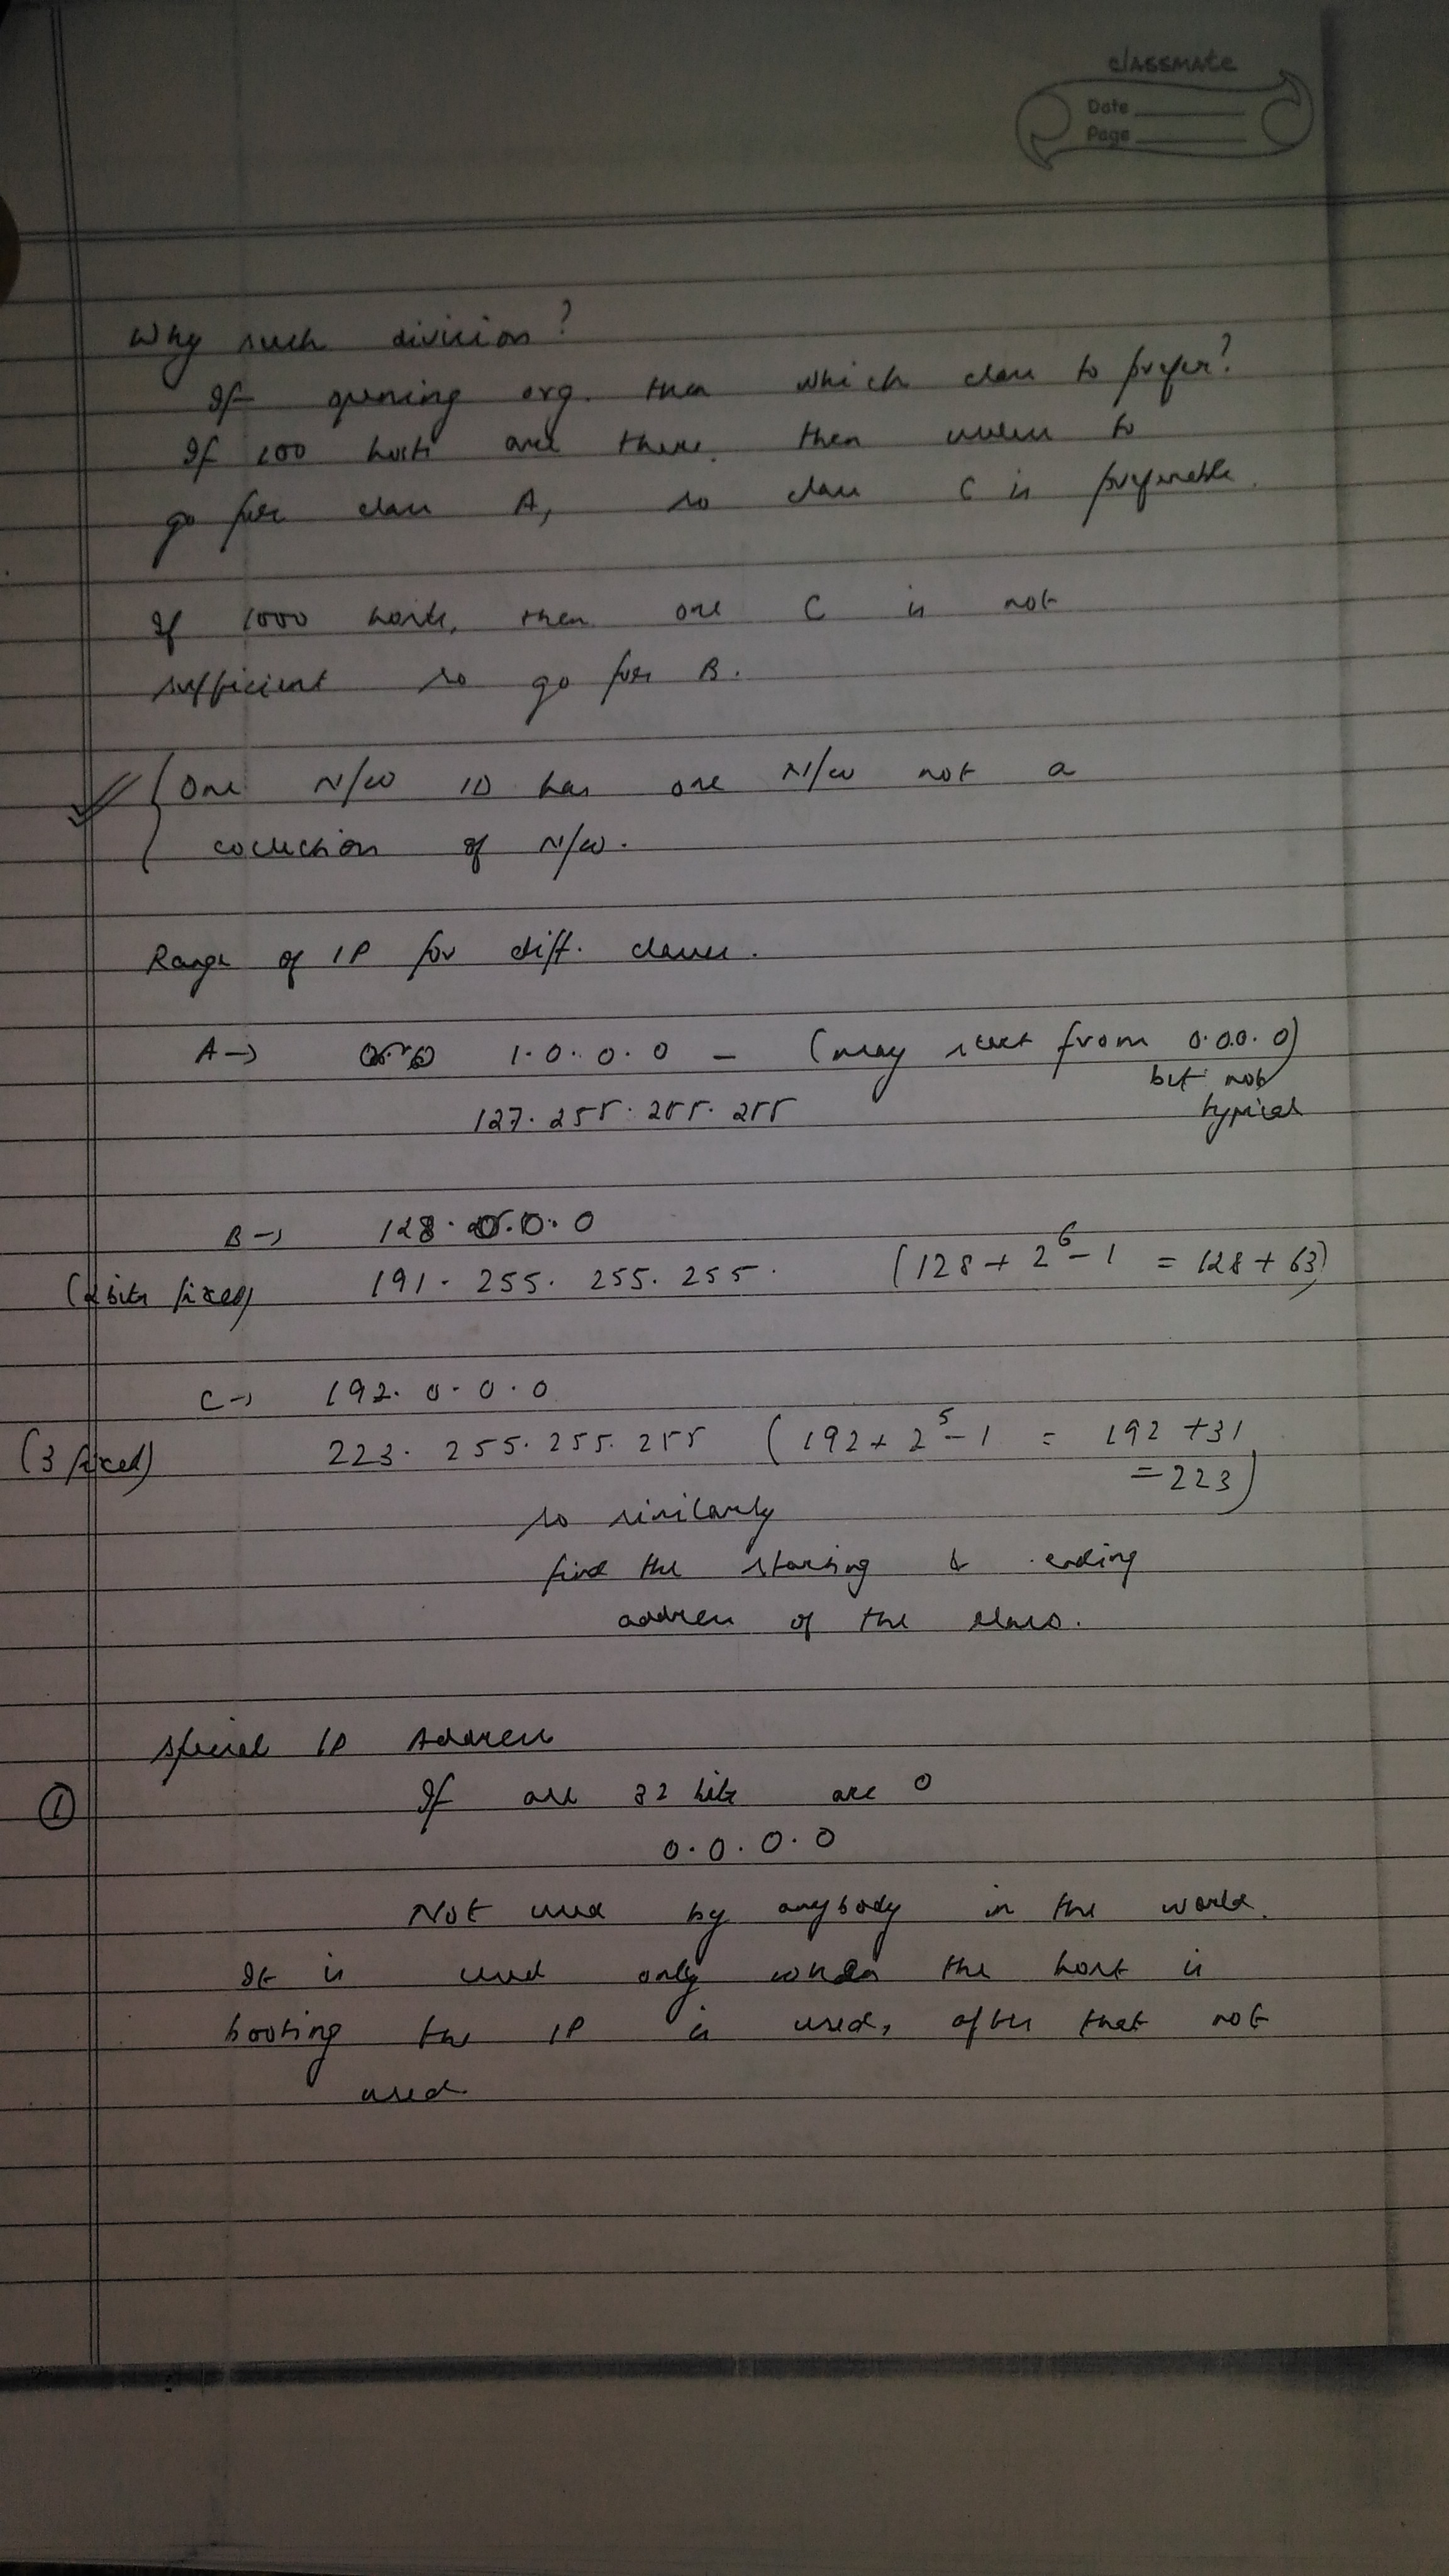 classmate
Date
Page
Why such division?
If opening org. then which class to prefer?
If 100 hosts are there, then useless to
go for class A, so class C is preferable.
If 1000 hosts, then one C is not
sufficient so go for B.
One N/W ID has one N/W not a
collection of N/W.
Range of IP for diff. classes.
A → 1.0.0.0 – (may start from 0.0.0.0)
but not
typical
127.255.255.255
B → 128.0.0.0
(2 bits fixed) 191.255.255.255. (128 + 2^6 - 1 = 128 + 63)
C → 192.0.0.0
(3 fixed) 223.255.255.255 (192 + 2^5 - 1 = 192 + 31
= 223)
so similarly
find the starting & ending
address of the class.
Special IP Address
① If all 32 bits are 0
0.0.0.0
Not used by anybody in the world.
It is used only when the host is
booting the IP is used, after that not
used